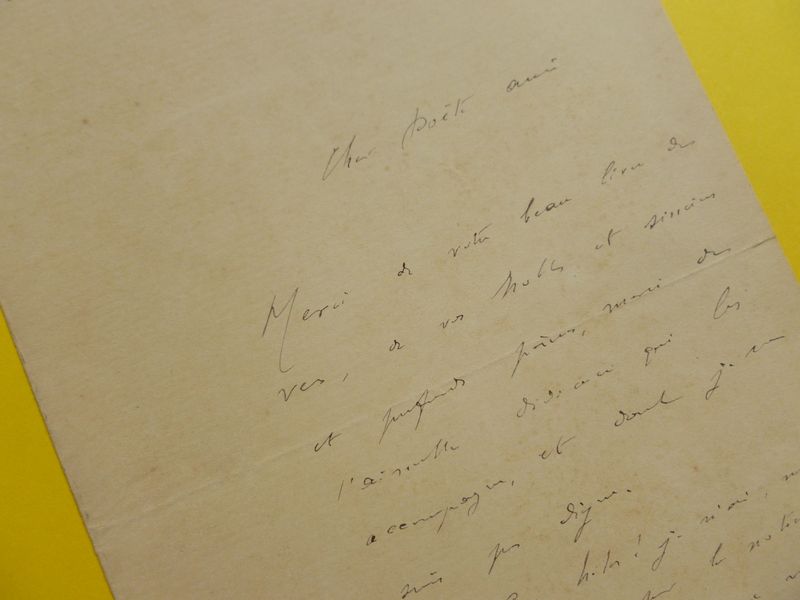 Cher poète ami
Merci de votre beau livre de
vers, de vos nobles et sincères
et profonds poèmes, merci de
l'aimable dédicace qui les
accompagne, et dont je ne
suis pas digne.
hélas! je n'ai,
la